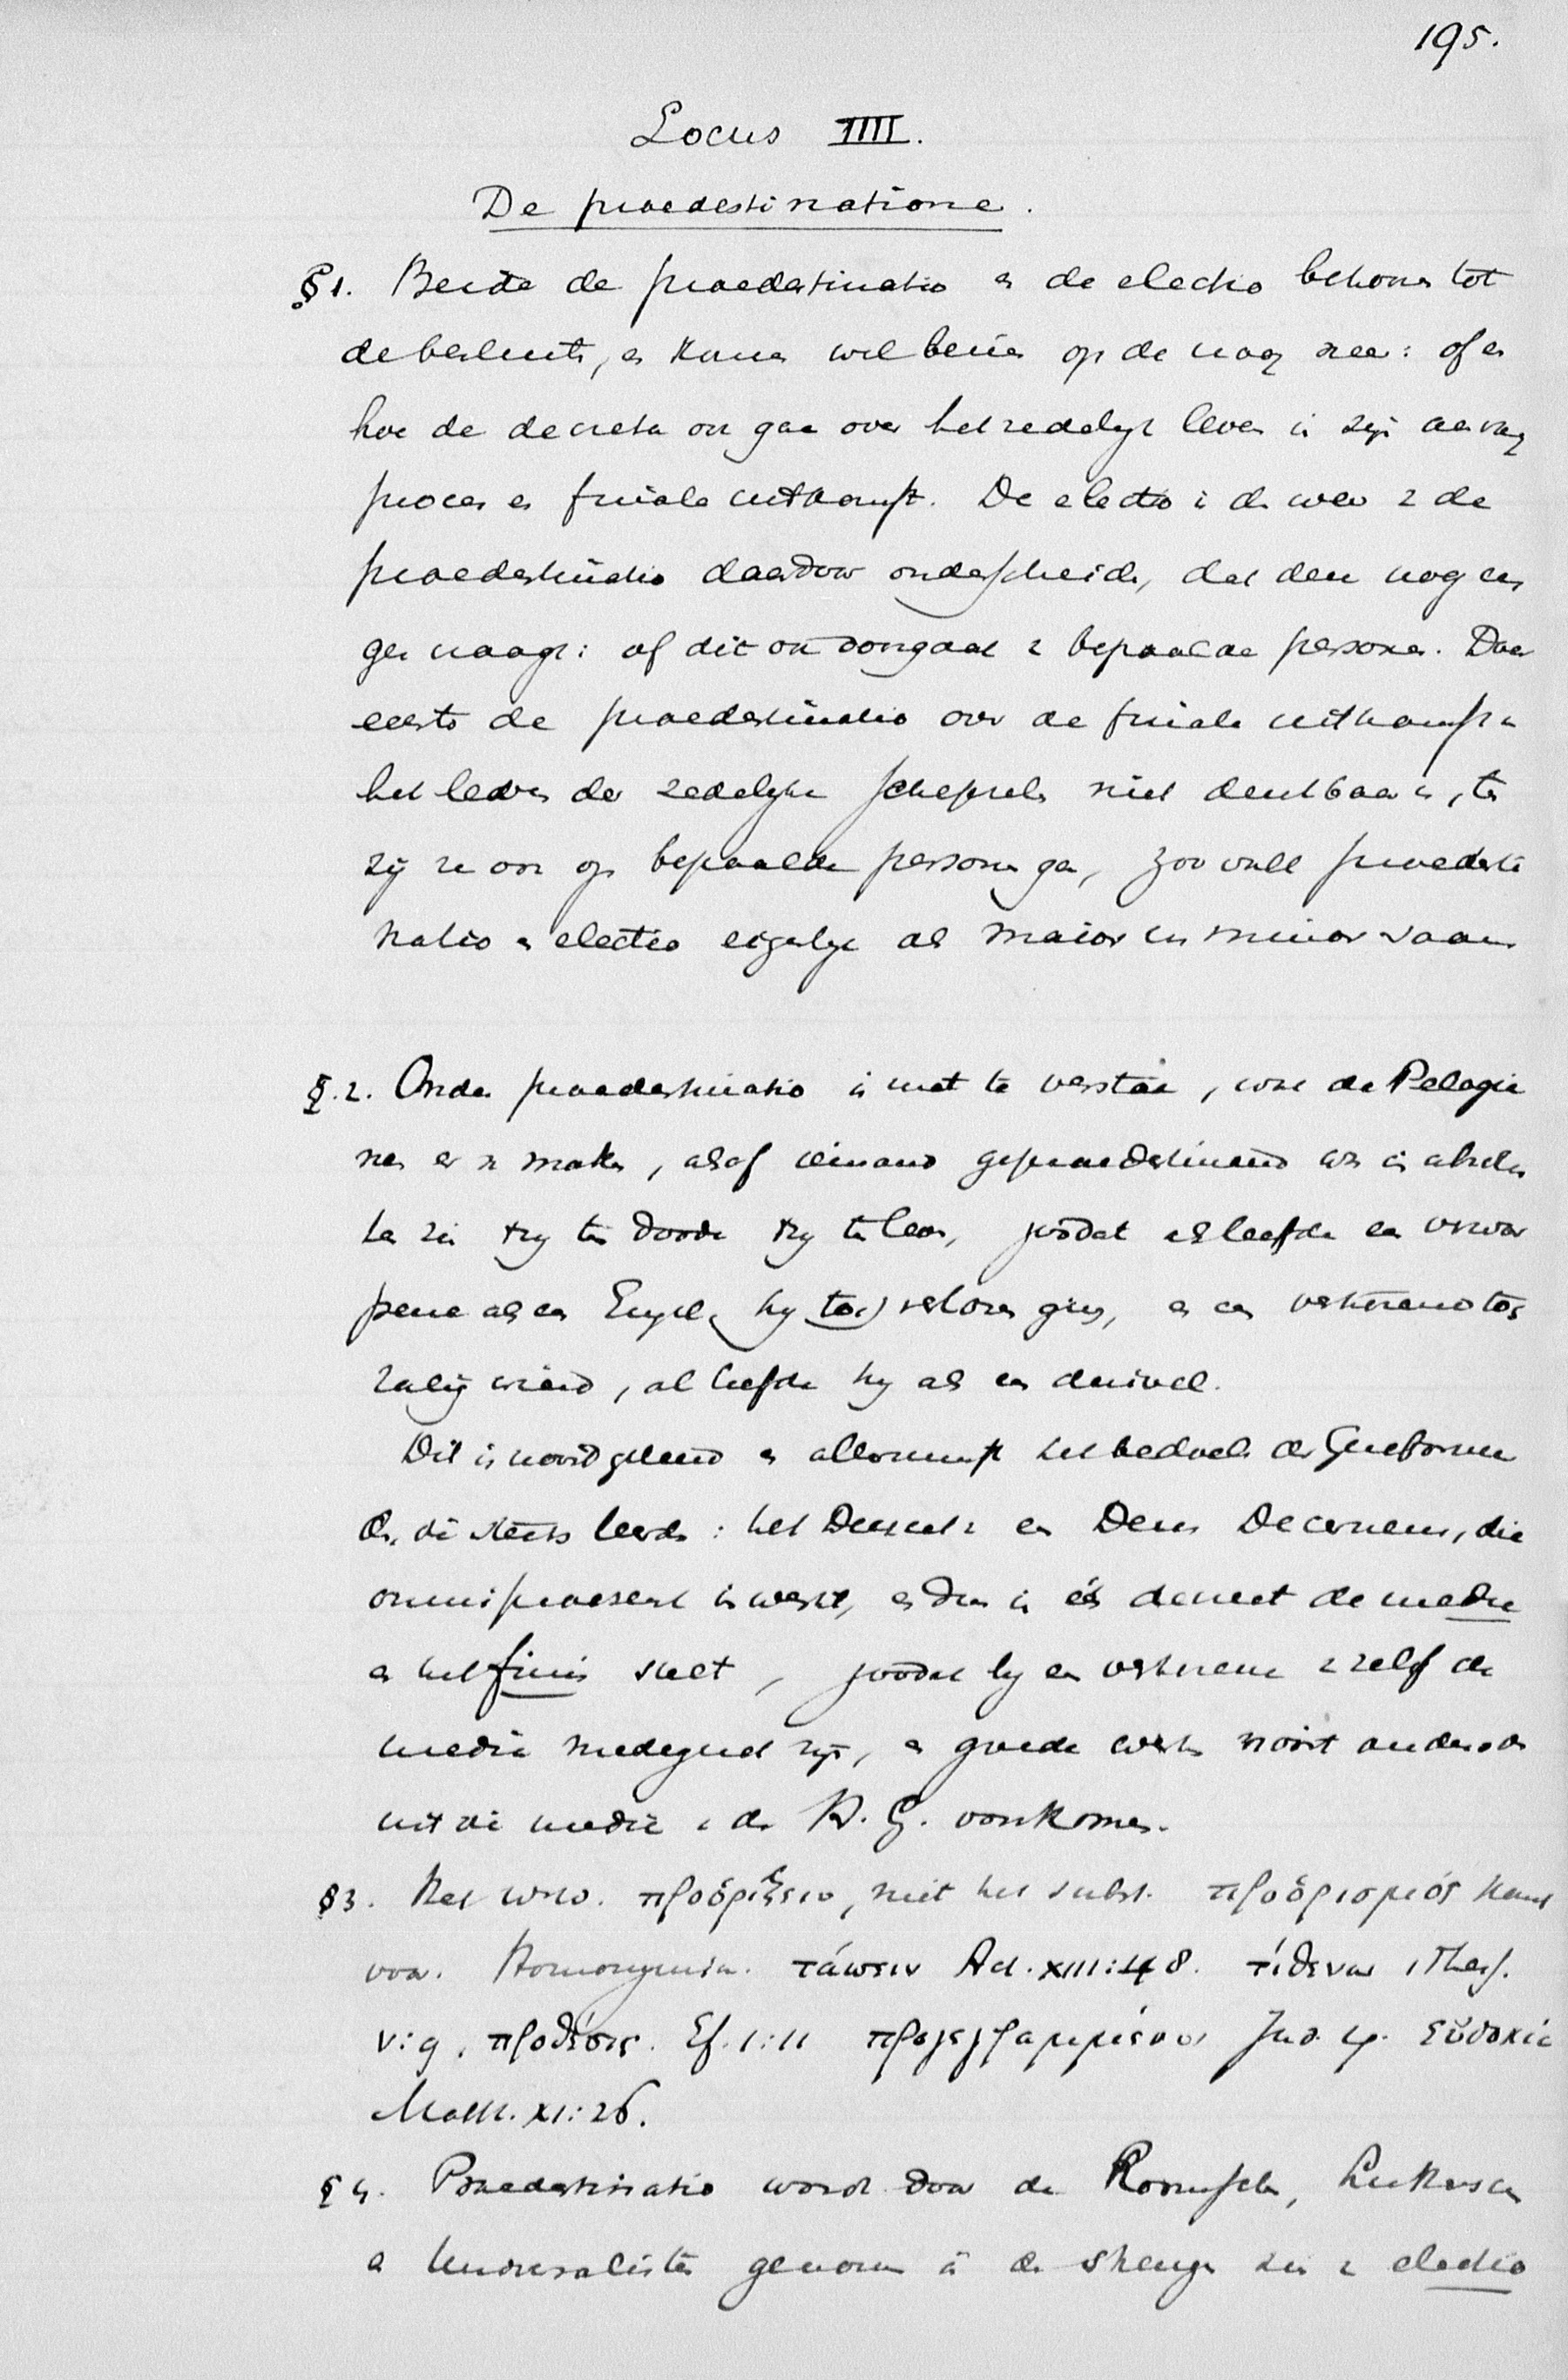 195.
Locus IIII.
De praedestinatione.
§1. Beide de praedestinatio en de electio behoren tot
de besluiten, en komen wel beiden op de vraag neer: of en
hoe de decreta ook gaan over het redelijk leven in zijn aanvang
proces en finale uitkomst. De electio is dan weer v. de
praedestinatio daardoor onderscheiden, dat dan nog eens
gevraagd: of dit ook doorgaat v. bepaalde personen. Daar
de praedestinatio over de finale uitkomst v.
het leven der zedelijke schepsels niet denkbaar is, ten
zij ze ook op bepaalde personen ga, praedesti
natio en electio eigenlijk als maior en minor
§.2. Onder praedestinatio is niet te verstaan, wat de Pelagia
nen er v. maken, alsof iemand gepraedestineerd
hij ten doode hij ten leven, zoodat al leefde een verwor
pene als een Engel, hij toch verloren ging, en een verkorene toch
zalig wierd, al leefde hij als een duivel.
Dit is nooit geleerd en allerminst het bedoelen der Gereformeer
den, die steeds leerden: het Decreet v. een Deus Decernens, die
omnipraesent is werkt, en dus in elk decreet de media
en het finis stelt, zoodat bij een verkorene vzelf de
media medegezet zijn, en goede werken nooit anders dan
uit die media v. den H. G. voorkomen.
§3. Het wrkw. προόριζειν, niet het subst. προόρισμός komt
voor. Homonymia. τάσσειν Act. XIII:48. τίθεναι 1 Thess.
V:9, προθέσις. Ef. 1:11 προγεγραμμένοι Jud. 4. εὐδοκία
Matth. XI:26.
§4. Praedestinatio wordt door de Roomschen, Lutherschen
en Universalisten genomen in den strengen zin v. electio